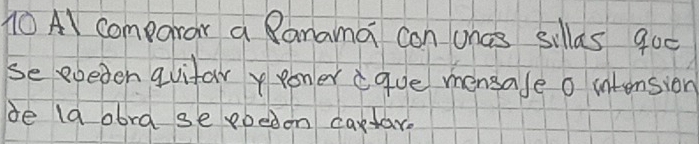 10 Al comparar a Panamá con unas sillas que
se pueden quitar y poner ¿que mensaje o intension
de la obra se pueden captar.